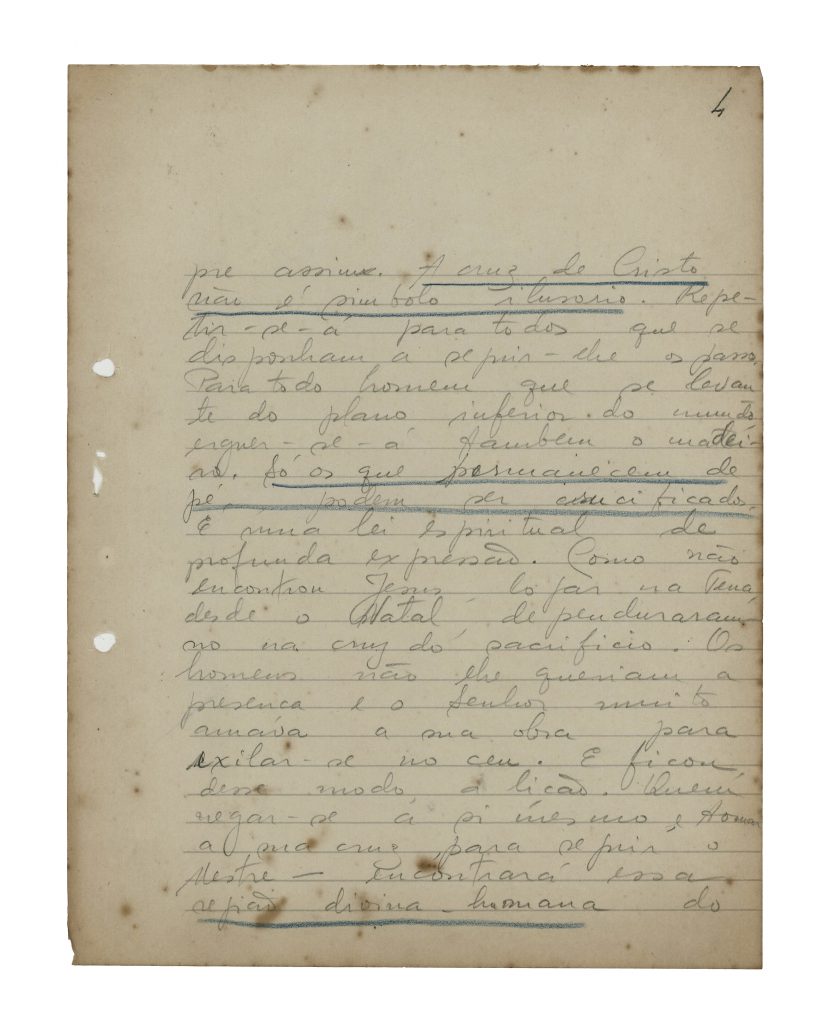 4
pre assim. A cruz de Cristo
não é simbolo ilusorio. Repe-
tir-se-á para todos que se
disponham a seguir-lhe os passos.
Para todo homem que se levan
te do plano inferior do mundo
erguer-se-á tambem o madei-
ro. Só os que permanecem de
pé, podem ser crucificados.
É uma lei espiritual de
profunda expressão. Como não
encontrou Jesus logar na Terra,
desde o Natal, dependuraram-
no na cruz do sacrificio. Os
homens não lhe queriam a
presença e o Senhor muito
amava a sua obra para
exilar-se no ceu. E ficou,
desse modo, a lição. Quem
negar-se á si mesmo, e tomar
a sua cruz, para seguir o
Mestre — encontrará essa
região divina-humana do